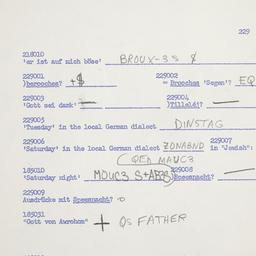 229
218010
'er ist auf mich böse' BROUX-3S $
229001 229002
)brooches? +$ = Brooches 'Segen'? EQ
229003 229004
'Gott sei dank' — )Tilleléi? —
229005
'Tuesday' in the local German dialect DINSTAG
229006 229007
'Saturday' in the local German dialect ZONABND in "Jewish":
MAUC3
185010 229008
'Saturday night' )Besemnacht? —
229009
Ausdrücke mit Besemnacht?
185031
"Gott von Awrohom" + QS FATHER